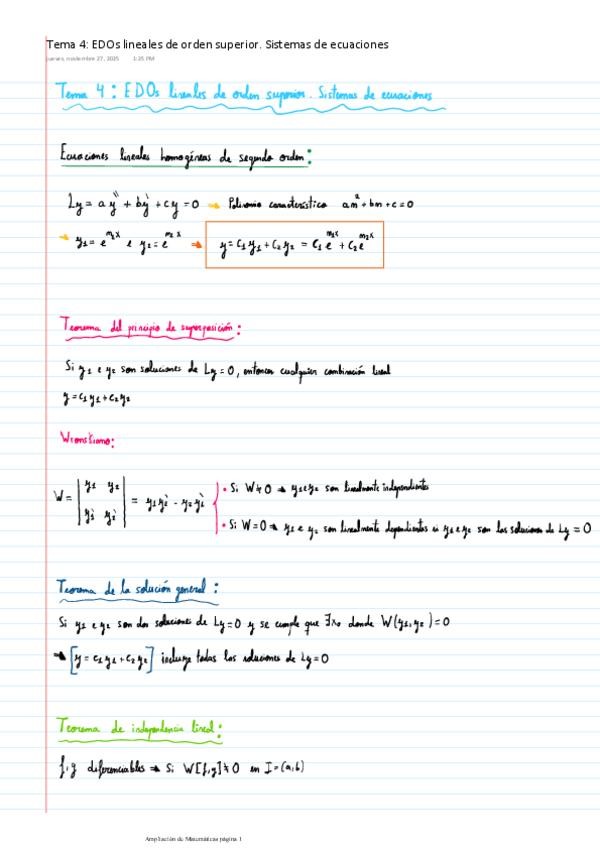 Tema 4: EDOs lineales de orden superior. Sistemas de ecuaciones
jueves, noviembre 27, 2025 1:25 PM
Tema 4: EDOs lineales de orden superior. Sistemas de ecuaciones
Ecuaciones lineales homogéneas de segundo orden:
Ly = ay'' + by' + cy = 0 → Polinomio característico am² + bm + c = 0
→ y₁ = e^{m₁x} e y₂ = e^{m₂x} → y = c₁y₁ + c₂y₂ = c₁e^{m₁x} + c₂e^{m₂x}
Teorema del principio de superposición:
Si y₁ e y₂ son soluciones de Ly = 0, entonces cualquier combinación lineal
y = c₁y₁ + c₂y₂
Wronskiano:
W = |y₁ y₂; y₁' y₂'| = y₁y₂' - y₂y₁'
• Si W ≠ 0 → y₁ e y₂ son linealmente independientes
• Si W = 0 → y₁ e y₂ son linealmente dependientes si y₁ e y₂ son las soluciones de Ly = 0
Teorema de la solución general:
Si y₁ e y₂ son dos soluciones de Ly = 0 y se cumple que ∃x₀ donde W(y₁,y₂) = 0
→ [y = c₁y₁ + c₂y₂] incluye todas las soluciones de Ly = 0
Teorema de independencia lineal:
f,g diferenciables → Si W[f,g] ≠ 0 en I = (a,b)
Ampliación de Matemáticas página 1